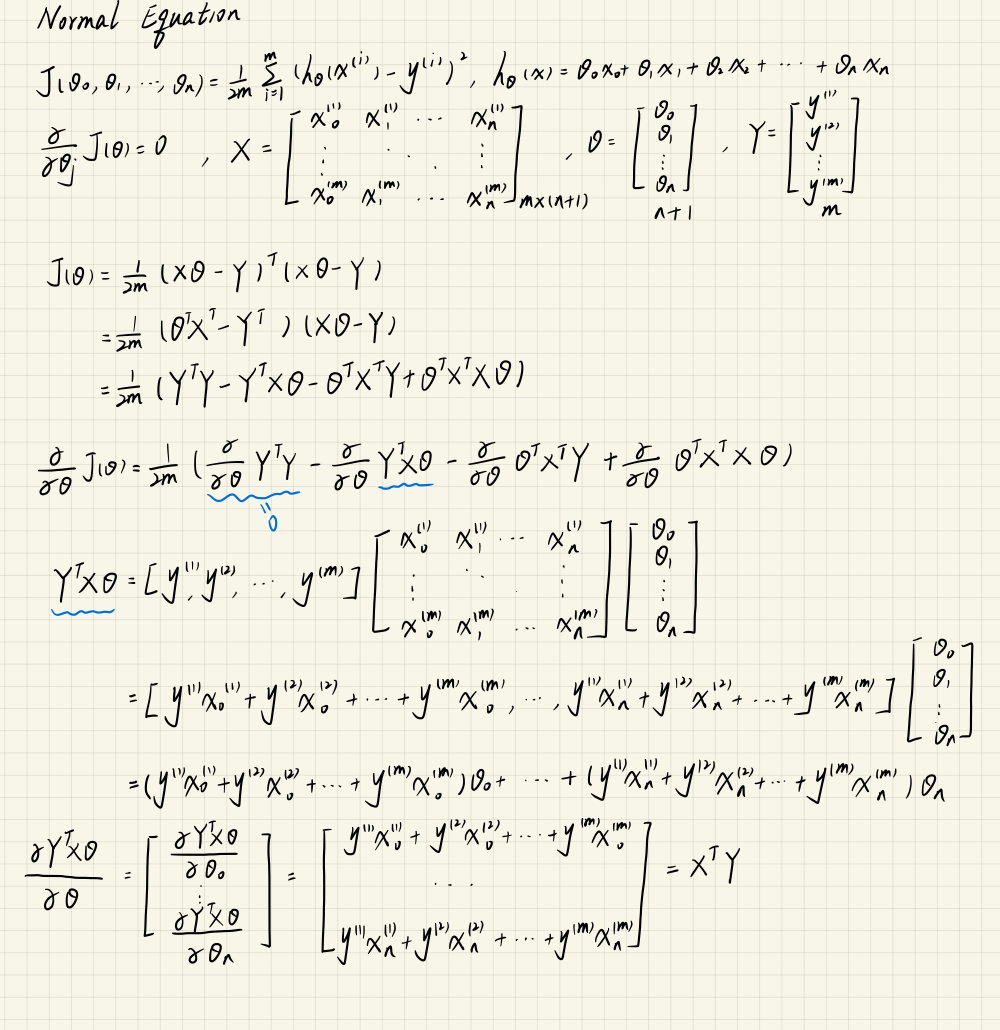 Normal Equation
J(θ₀, θ₁, ..., θₙ) = 1/2m Σ_{i=1}^{m} (h_θ(x^(i)) - y^(i))², h_θ(x) = θ₀x₀ + θ₁x₁ + θ₂x₂ + ... + θₙxₙ
∂/∂θ_j J(θ) = 0 , X = [x₀^(1) x₁^(1) ... xₙ^(1); ⋮ ⋱ ⋮; x₀^(m) x₁^(m) ... xₙ^(m)]_{m×(n+1)} , θ = [θ₀; θ₁; ⋮; θₙ] n+1 , Y = [y^(1); y^(2); ⋮; y^(m)] m
J(θ) = 1/2m (Xθ - Y)^T (Xθ - Y)
= 1/2m (θ^T X^T - Y^T) (Xθ - Y)
= 1/2m (Y^T Y - Y^T Xθ - θ^T X^T Y + θ^T X^T Xθ)
∂/∂θ J(θ) = 1/2m (∂/∂θ Y^T Y - ∂/∂θ Y^T Xθ - ∂/∂θ θ^T X^T Y + ∂/∂θ θ^T X^T Xθ)
= 0
Y^T Xθ = [y^(1), y^(2), ..., y^(m)] [x₀^(1) x₁^(1) ... xₙ^(1); ⋮ ⋱ ⋮; x₀^(m) x₁^(m) ... xₙ^(m)] [θ₀; θ₁; ⋮; θₙ]
= [y^(1)x₀^(1) + y^(2)x₀^(2) + ... + y^(m)x₀^(m), ..., y^(1)xₙ^(1) + y^(2)xₙ^(2) + ... + y^(m)xₙ^(m)] [θ₀; θ₁; ⋮; θₙ]
= (y^(1)x₀^(1) + y^(2)x₀^(2) + ... + y^(m)x₀^(m))θ₀ + ... + (y^(1)xₙ^(1) + y^(2)xₙ^(2) + ... + y^(m)xₙ^(m))θₙ
∂Y^T Xθ/∂θ = [∂Y^T Xθ/∂θ₀; ⋮; ∂Y^T Xθ/∂θₙ] = [y^(1)x₀^(1) + y^(2)x₀^(2) + ... + y^(m)x₀^(m); ...; y^(1)xₙ^(1) + y^(2)xₙ^(2) + ... + y^(m)xₙ^(m)] = X^T Y